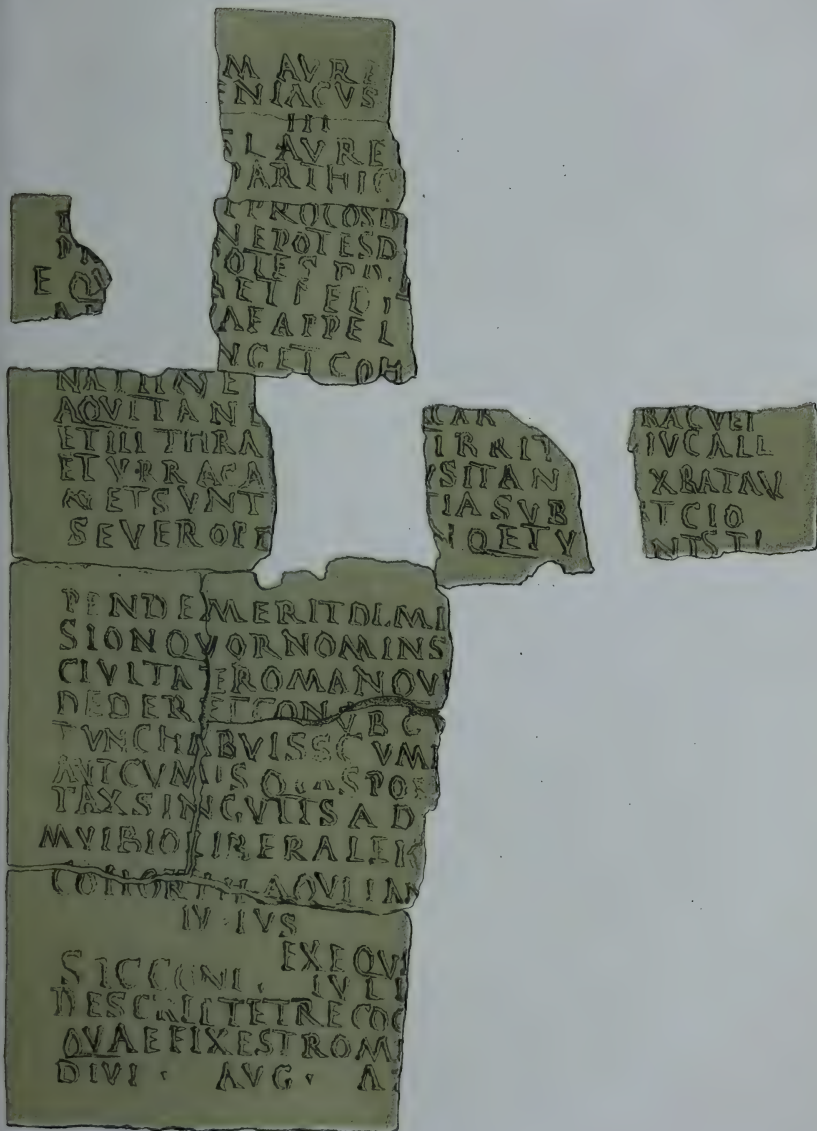 M AVRE
ENIACVS
III
ET L AVRE
PARTHIC
ET PROCOSD
NEPOTESD
E Q
ET PEDIT
AE APPEL
NGETCOH
AQVITANI
ETIII THRA
ET VRRACA
N ETSVNT
SEVEROPE
CAR
IRRIT
VSITAN
TIASVB
QETV
RACVET
IVCALL
XBATAV
ETCIO
NTSTI
PENDEMERITDIMI
SIONQVORNOMINS
CIVITATEROMANQV
DEDERETCONVBC
TVNCHABVISSCVMI
AVTCVMISQVASPOS
TAXSINGVLISAD
MVIBIOLIBERALEIC
COHORTIIIAQVITAN
IVLIVS
EXEQVI
SICCONI IVLI
DESCRIETETRECOG
QVAEFIXESTROM
DIVI · AVG · A